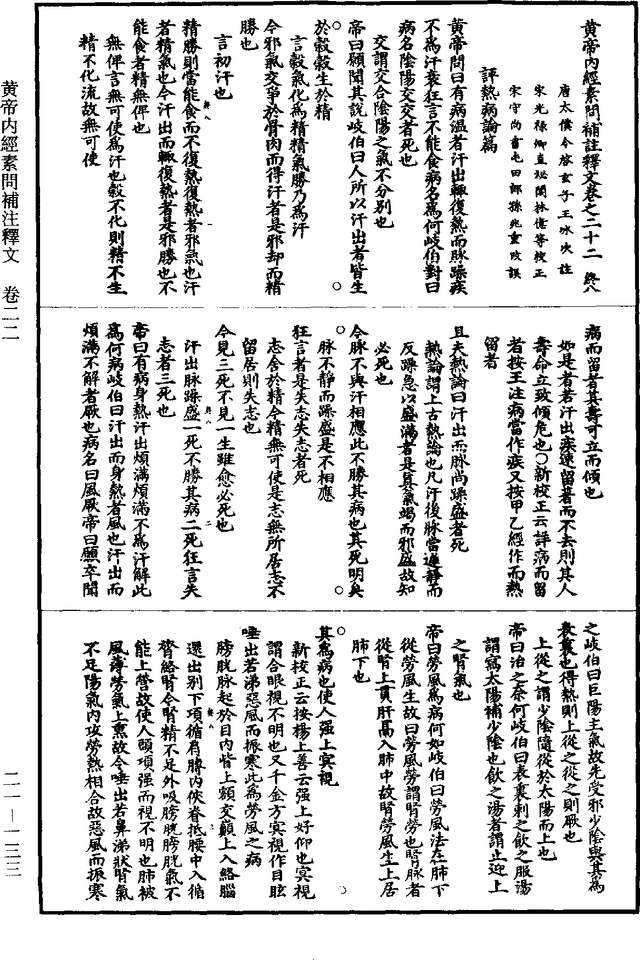 黃帝內經素問補註釋文卷之二十二 終八
唐太僕令啓玄子王冰次註
宋光祿卿直祕閣林億等校正
宋守尚書屯田郎孫兆重改誤
評熱病論篇
黃帝問曰有病溫者汗出輒復熱而脉躁疾
不爲汗衰狂言不能食病名爲何岐伯對曰
病名陰陽交交者死也
交謂交合陰陽之氣不分別也
帝曰願聞其說岐伯曰人所以汗出者皆生
於穀穀生於精
言穀氣化爲精精氣勝乃爲汗
今邪氣交爭於骨肉而得汗者是邪却而精
勝也
言初汗也
精勝則當能食而不復熱復熱者邪氣也汗
者精氣也今汗出而輒復熱者是邪勝也不
能食者精無俾也
無俾言無可使爲汗也穀不化則精不生
精不化流故無可使
病而留者其壽可立而傾也
如是者若汗出疾速留著而不去則其人
壽命立致傾危也○新校正云詳病而留
者按王注病當作疾又按甲乙經作而熱
留者
且夫熱論曰汗出而脉尚躁盛者死
熱論謂上古熱論也凡汗後脉當遲靜而
反躁急以盛滿者是真氣竭而邪盛故知
必死也
今脉不與汗相應此不勝其病也其死明矣
脉不靜而躁盛是不相應
狂言者是失志失志者死
志舍於精今精無可使是志無所居志不
留居則失志也
今見三死不見一生雖愈必死也
汗出脉躁盛一死不勝其病二死狂言失
志者三死也
帝曰有病身熱汗出煩滿煩滿不爲汗解此
爲何病岐伯曰汗出而身熱者風也汗出而
煩滿不解者厥也病名曰風厥帝曰願卒聞
之岐伯曰巨陽主氣故先受邪少陰與其爲
表裏也得熱則上從之從之則厥也
上從之謂少陰隨從於太陽而上也
帝曰治之柰何岐伯曰表裏刺之飲之服湯
謂瀉太陽補少陰也飲之湯者謂止逆上
之腎氣也
帝曰勞風爲病何如岐伯曰勞風法在肺下
從勞風生故曰勞風勞謂腎勞也腎脉者
從腎上貫肝鬲入肺中故腎勞風生上居
肺下也
其爲病也使人強上冥視
新校正云按楊上善云強上好仰也冥視
謂合眼視不明也又千金方冥視作目眩
唾出若涕惡風而振寒此爲勞風之病
膀胱脉起於目內眥上額交巔上入絡腦
還出別下項循肩髆內俠脊抵腰中入循
膂絡腎今腎精不足外吸膀胱膀胱氣不
能上營故使人頭項強而視不明也肺被
風薄勞氣上熏故令唾出若鼻涕狀腎氣
不足陽氣內攻勞熱相合故惡風而振寒
黄帝内經素問補注釋文 卷二二
二一—一三三